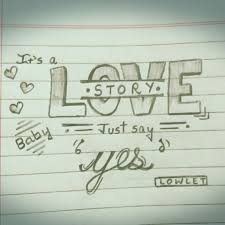 It's a
LOVE
STORY
Baby
Just say
yes
LOWLET